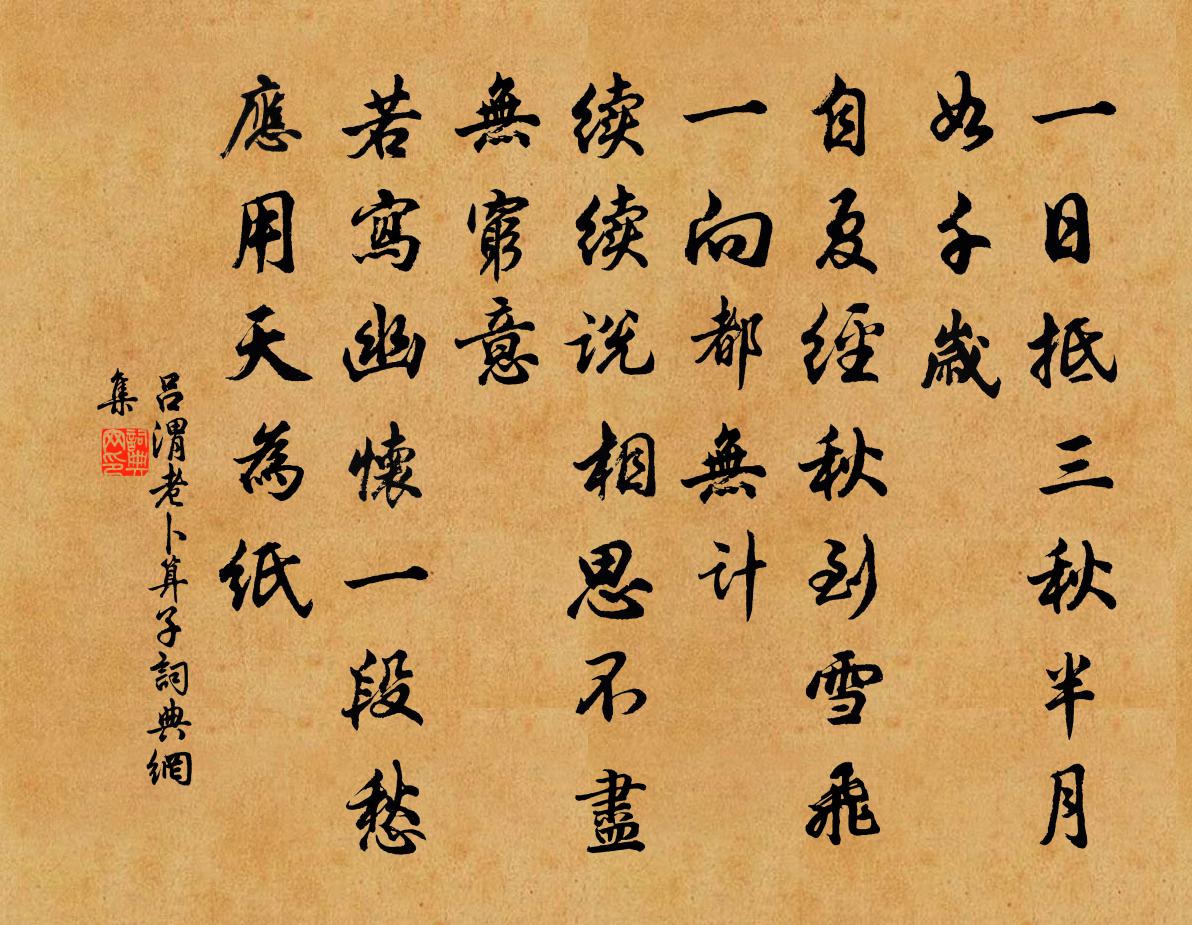 一日抵三秋半月
如千歲
自夏經秋到雪飛
一向都無計
續續説相思不盡
無窮意
若寫幽懷一段愁
應用天為紙
呂渭老卜算子詞典網
集
詞典
网印